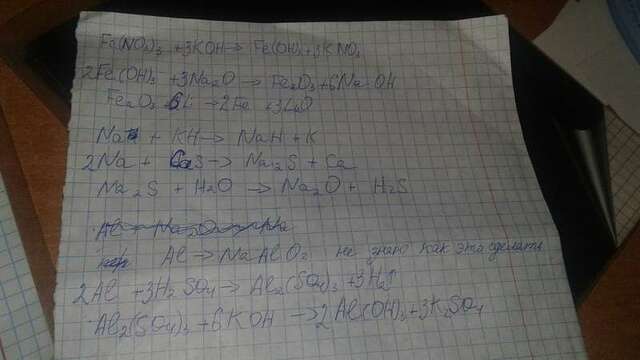 Fe(NO₃)₃ + 3KOH → Fe(OH)₃ + 3KNO₃
2Fe(OH)₃ + 3Na₂O → Fe₂O₃ + 6NaOH
Fe₂O₃ 6Li → 2Fe + 3Li₂O
Na + KH → NaH + K
2Na + CaS → Na₂S + Ca
Na₂S + H₂O → Na₂O + H₂S
Al → NaAlO₂ не знаю как это сделать
2Al + 3H₂SO₄ → Al₂(SO₄)₃ + 3H₂↑
Al₂(SO₄)₃ + 6KOH → 2Al(OH)₃ + 3K₂SO₄